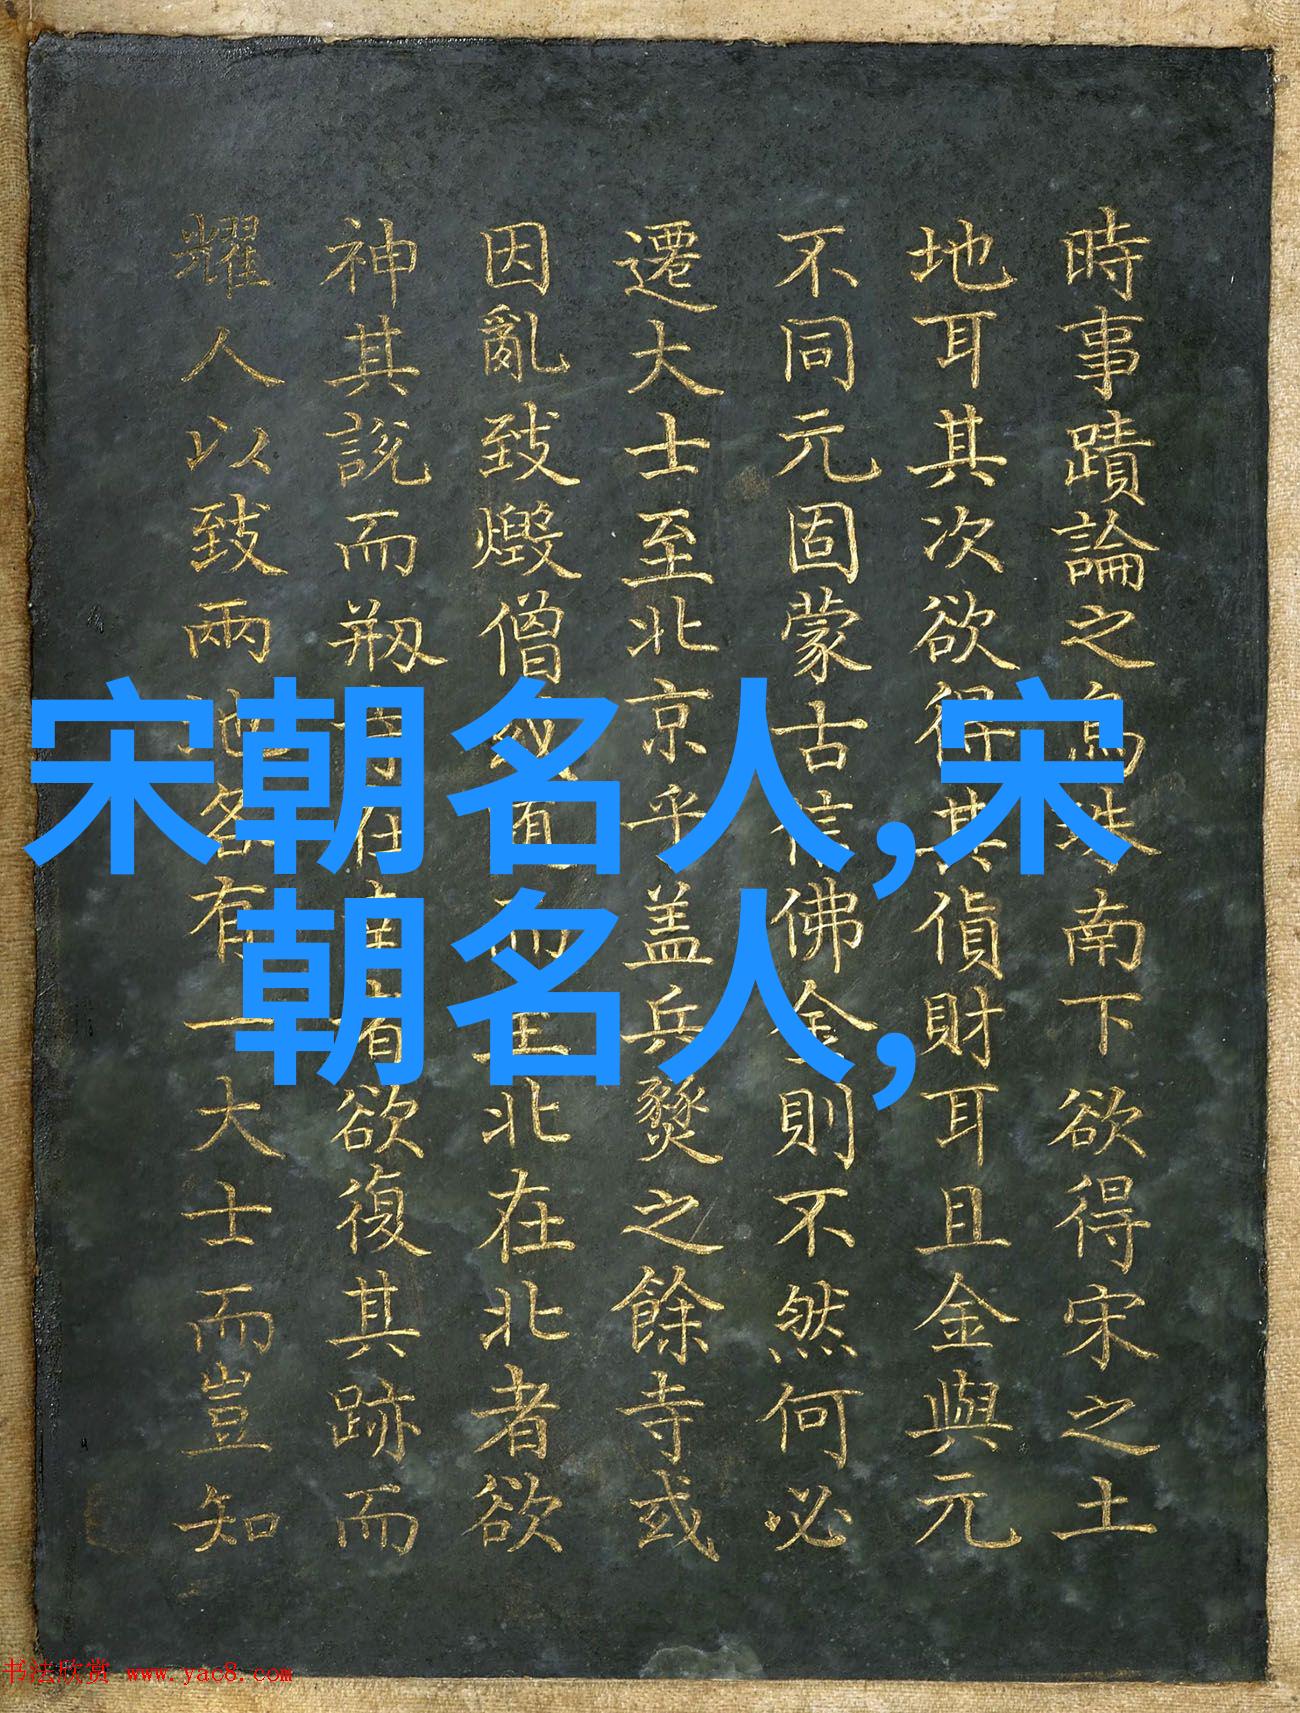 時事蹟論之烏珠南下欲得宋之土
地耳其次欲得其貨財耳且金與元
不同元固蒙古信佛金則不然何必
遷大士至北京乎盖兵燹之餘寺或
因亂致燬僧或有而至北在北者欲
神其說而剏寺在南者欲復其跡而
耀人以致兩地各有一大士而豈知
宋朝名人,宋
朝名人,
书法欣赏 www.yac8.com